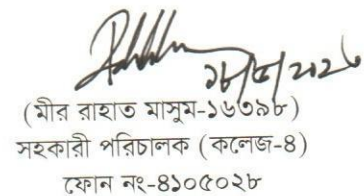 (মীর রাহাত মাসুম-১৬৩৯৮)
সহকারী পরিচালক (কলেজ-৪)
ফোন নং-৪১০৫০২৮